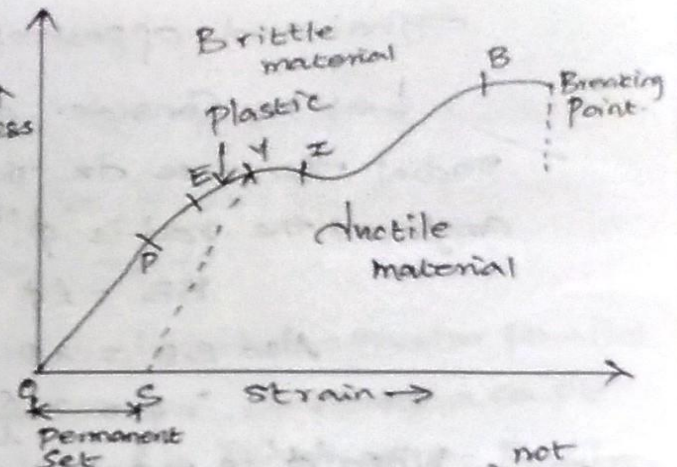 Brittle
material
B
Breaking
Point.
ess
plastic
E
Y
Z
P
ductile
material
O
S
Strain →
permanent
set
not